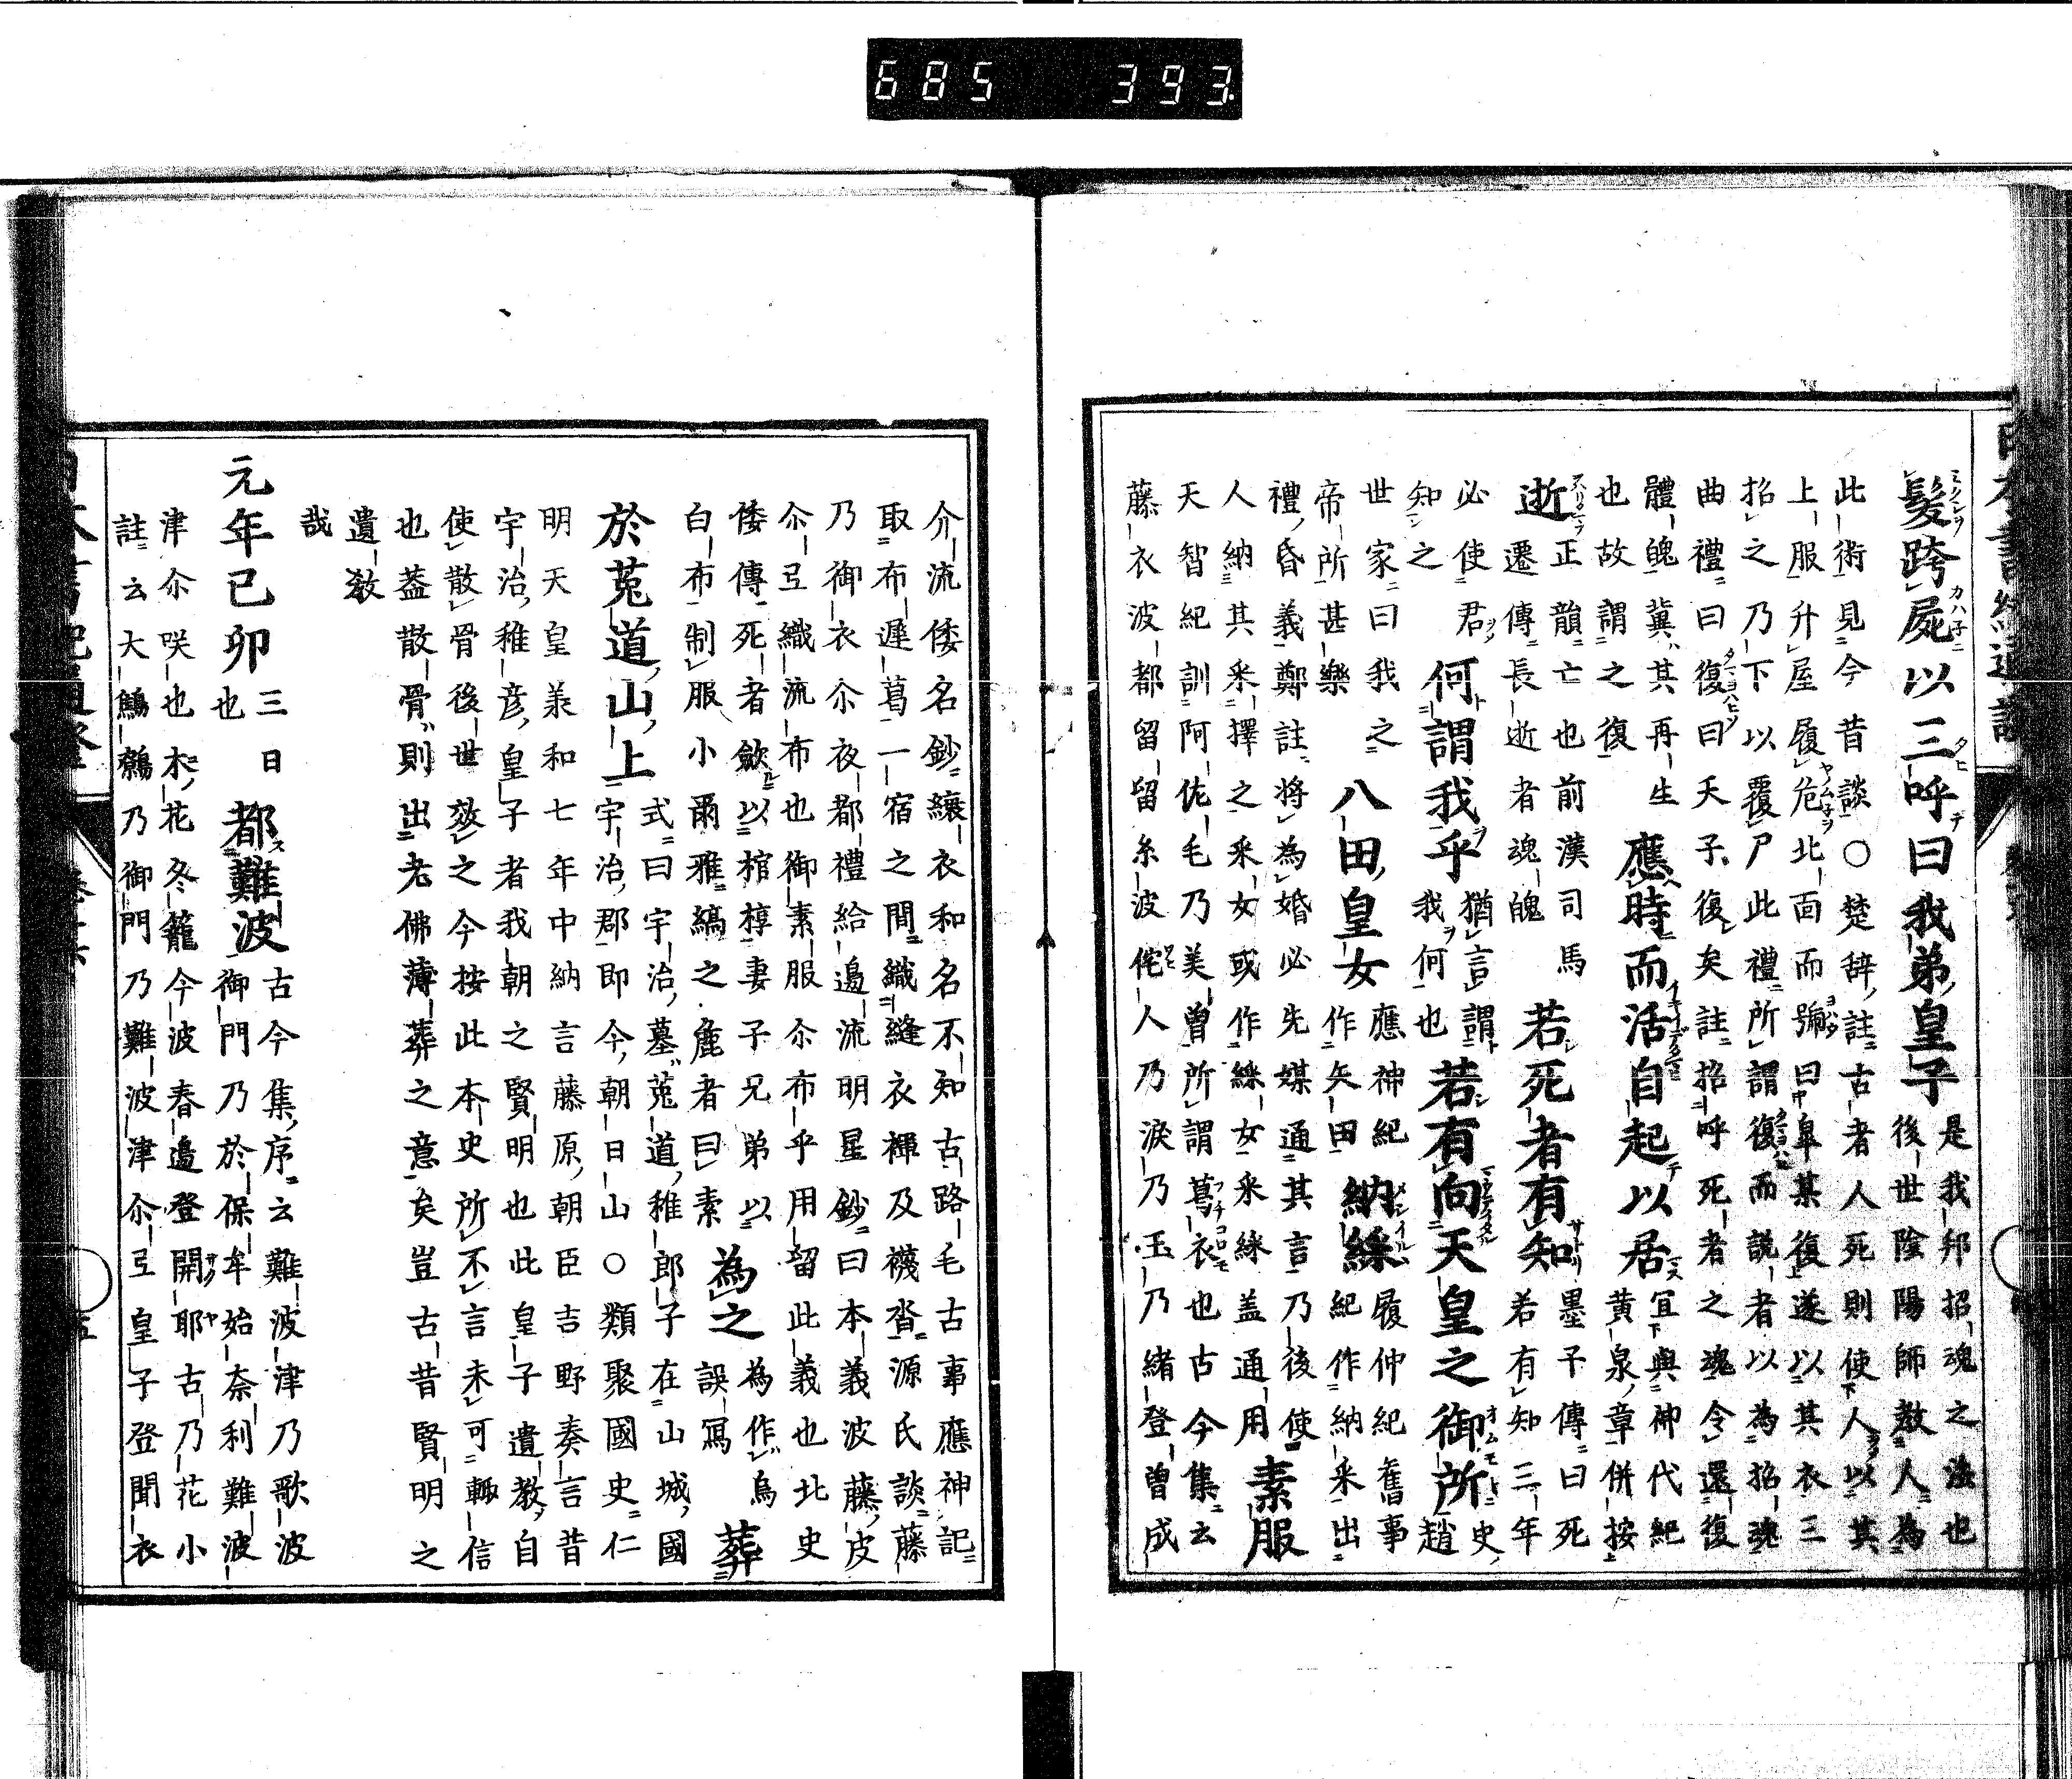 髮跨屍以三呼曰我弟皇子
是我邦招魂之法也
後世陰陽師教人為
此術見今昔談○楚辭註古者人死則使人以其
上服升屋履危北面而號曰皐某復遂以其衣三
招之乃下以覆尸此禮所謂復而說者以為招魂
曲禮曰復曰天子復矣註招呼死者之魂令還復
體魄冀其再生
也故謂之復
應時而活自起以居
宜與神代紀
黃泉章併按
逝
正韻亡也前漢司馬
遷傳長逝者魂魄
若死者有知
墨子傳曰死
若有知三年
必使君
知之
何謂我乎
猶言謂
我何也
若有向天皇之御所
史
趙
世家曰我之
帝所甚樂
八田皇女
應神紀
作矢田
納綵
履仲紀舊事
紀作納采出
禮昏義鄭註將為婚必先媒通其言乃後使
人納其采擇之采女或作綵女采綵盖通用
素服
天智紀訓阿佐毛乃美曾所謂蔦衣也古今集云
藤衣波都留留糸波侘人乃淚乃玉乃緒登曾成
介流倭名鈔縗衣和名不知古路毛古事應神記
取布遲葛一宿之間織縫衣褌及襪沓源氏談藤
乃御衣尒夜都禮給邊流明星鈔曰本義波藤皮
尒弖織流布也御素服尒布乎用留此義也北史
倭傳死者斂以棺椁妻子兄弟以
白布制服小爾雅縞之麁者曰素
為之
為作烏
誤寫
葬
於菟道山上
式曰宇治墓菟道稚郎子在山城國
宇治郡即今朝日山○類聚國史仁
明天皇羕和七年中納言藤原朝臣吉野奏言昔
宇治稚彥皇子者我朝之賢明也此皇子遺教自
使散骨後世效之今按此本史所不言未可輙信
也葢散骨則出老佛薄葬之意矣豈古昔賢明之
遺教
哉
元年已卯
三日
也
都難波
古今集序云難波津乃歌波
御門乃於保牟始奈利難波
津尒咲也木花冬籠今波春邊登開耶古乃花小
註云大鷦鷯乃御門乃難波津尒弖皇子登聞衣
685 393